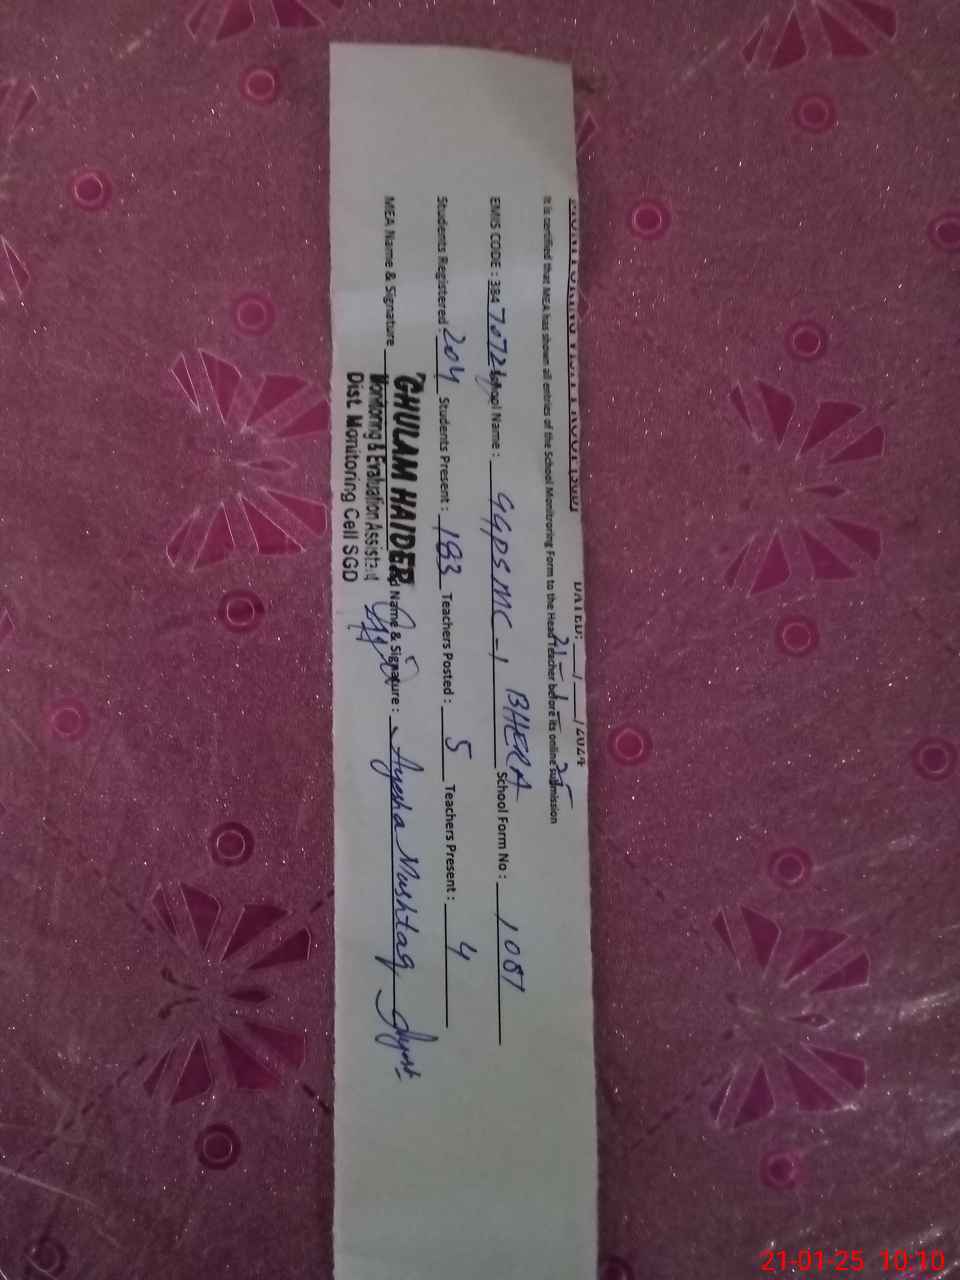 MONITORING VISIT PROOF (SGD) DATED: __/__/2024
21-1-25
It is certified that MEA has shown all entries of the School Monitroring Form to the Head Teacher before its online submission
EMIS CODE : 384 70728 School Name : GGPS MC-1 BHERA School Form No : 1081
Students Registered : 204 Students Present : 183 Teachers Posted : 5 Teachers Present : 4
MEA Name & Signature Name & Signature : Ayesha Mushtaq
GHULAM HAIDER
Monitoring & Evaluation Assistant
Dist. Monitoring Cell SGD
21-01-25 10:10